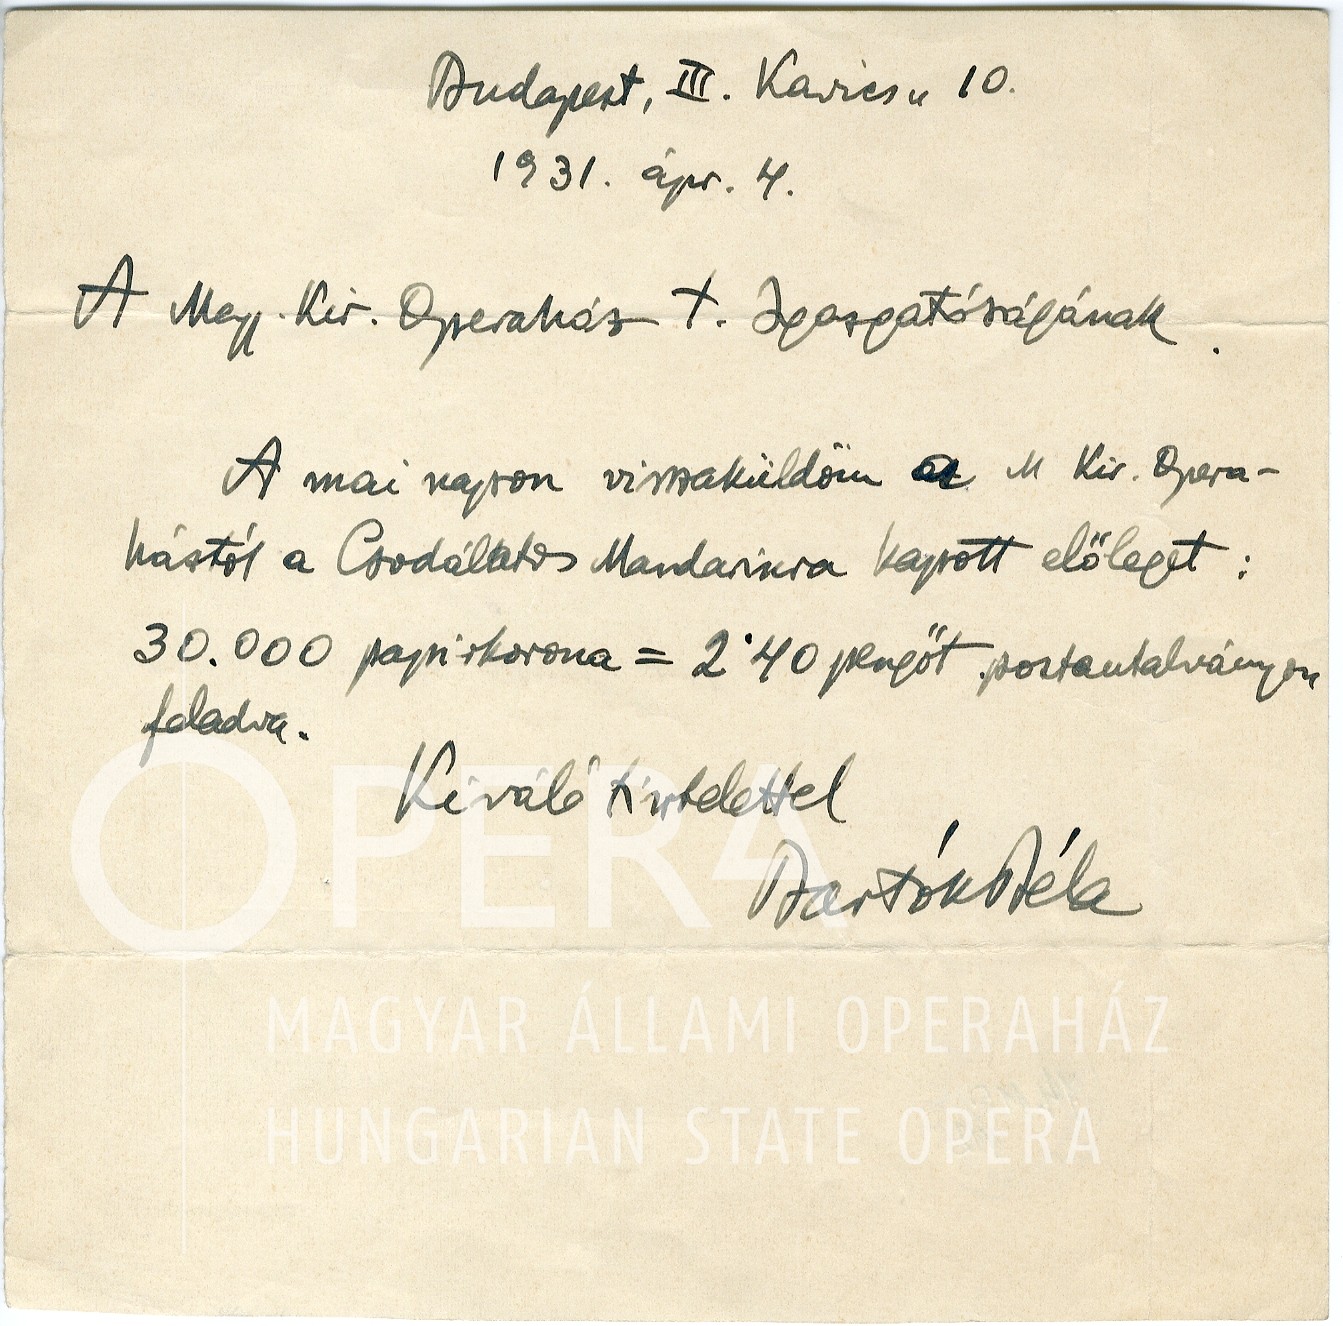 Budapest, III. Kavics u 10.
1931. ápr. 4.
A Magy. Kir. Operaház t. Igazgatóságának.
A mai napon visszaküldöm az M Kir. Opera-
háztól a Csodálatos Mandarinra kapott előleget:
30.000 papirkorona = 2·40 pengőt postautalványon
feladva.
Kiváló tisztelettel
Bartók Béla
OPERA
MAGYAR ÁLLAMI OPERAHÁZ
HUNGARIAN STATE OPERA